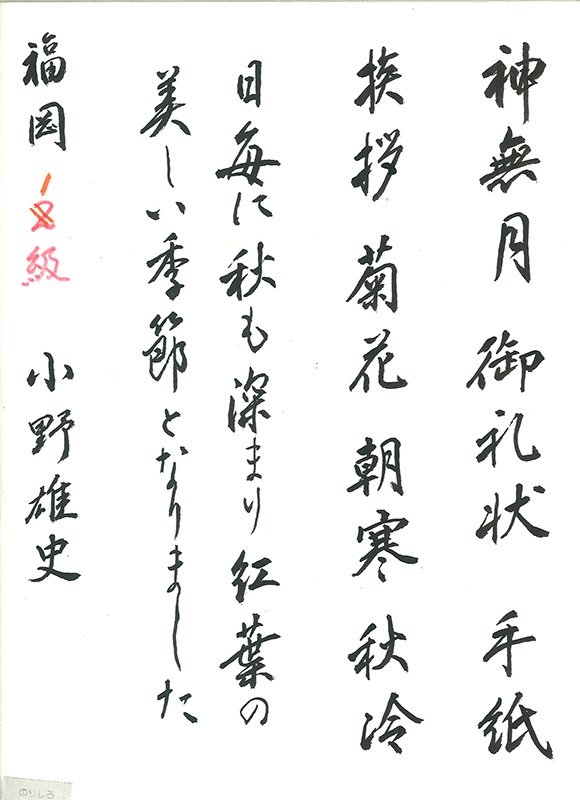 神無月 御礼状 手紙
挨拶 菊花 朝寒 秋冷
日毎に秋も深まり紅葉の
美しい季節となりました
福岡 1級 小野雄史
のりしろ